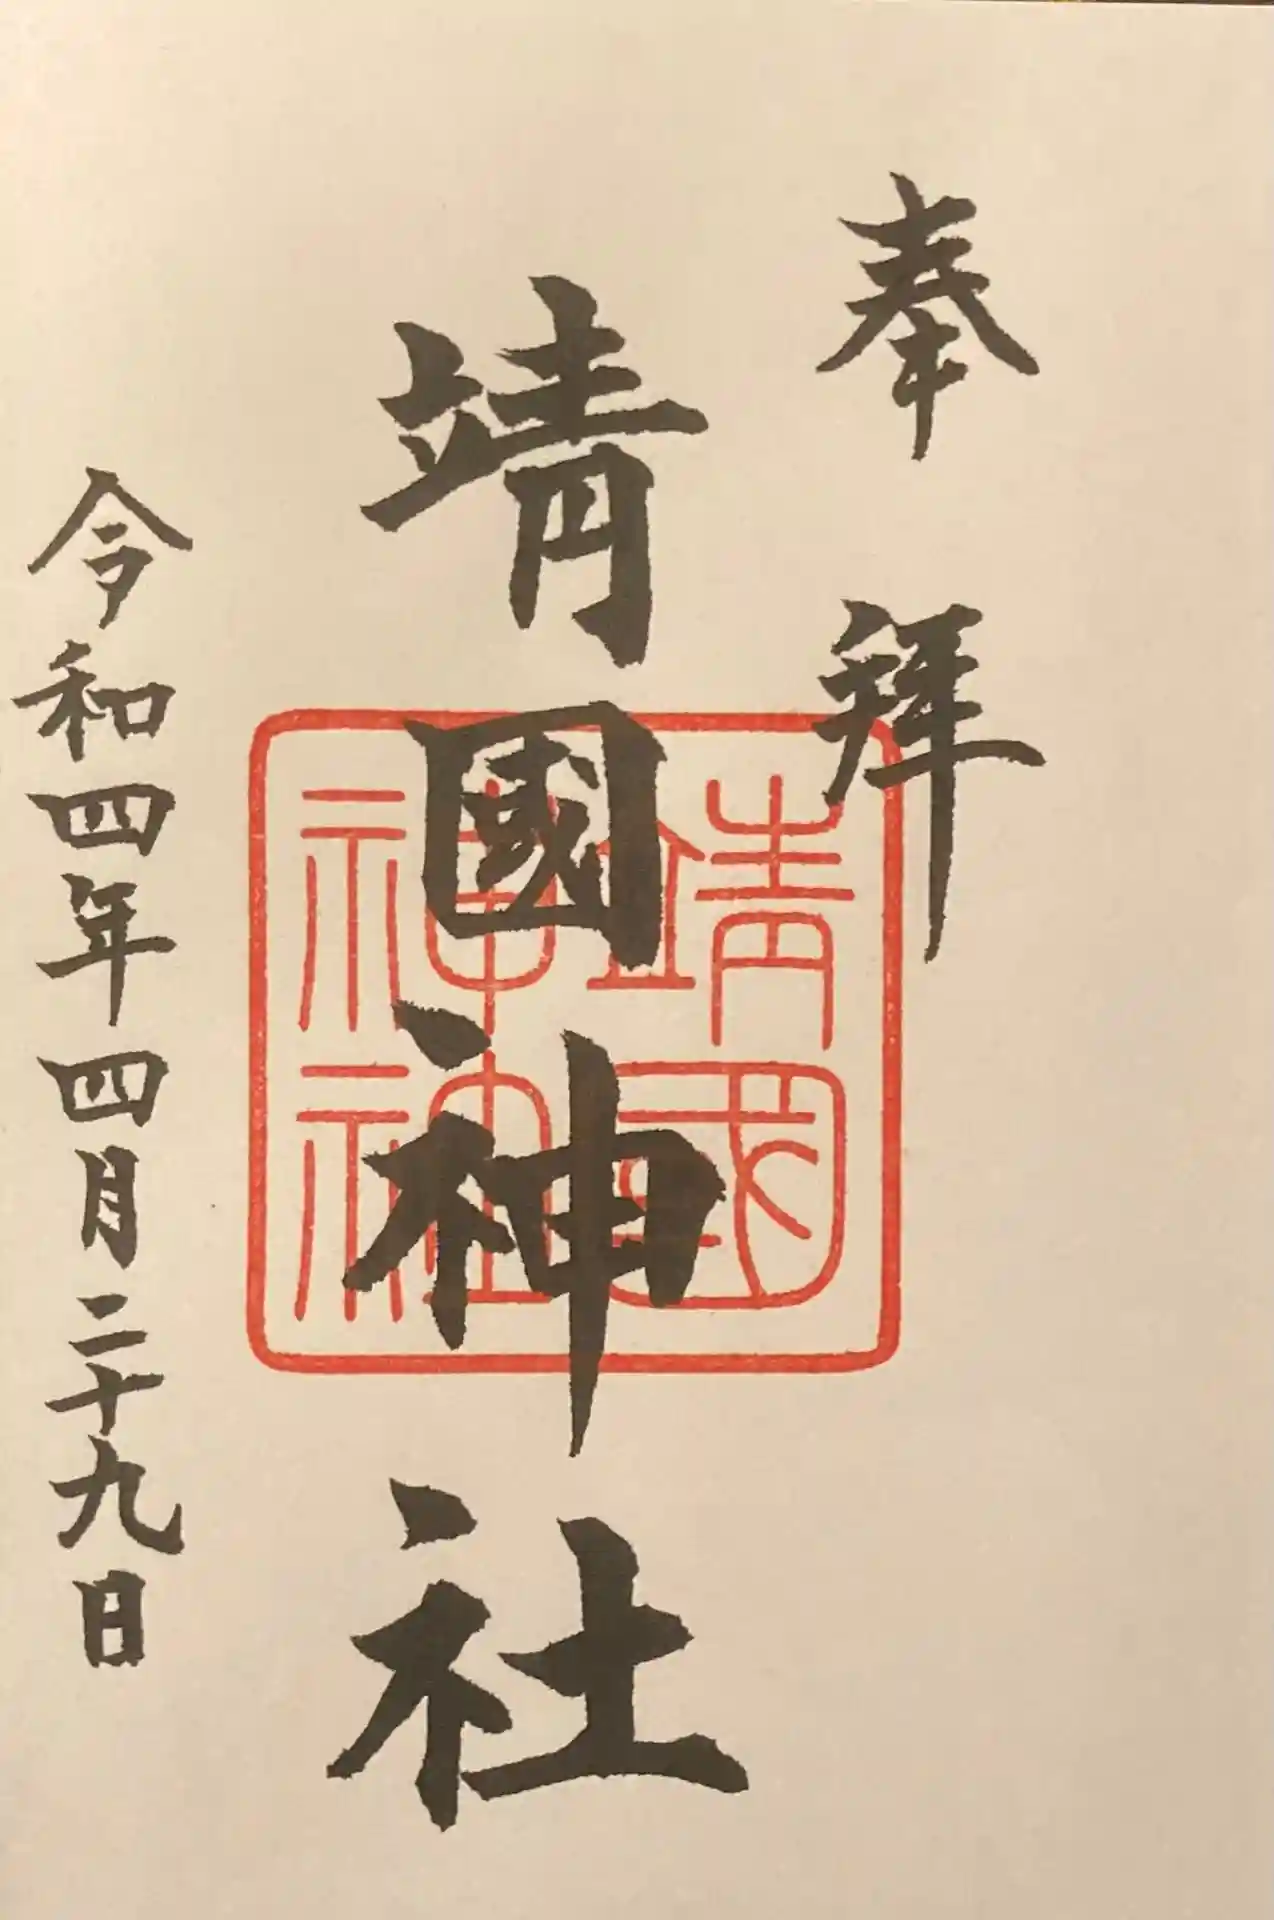 奉拜
靖國神社
令和四年四月二十九日
靖國
神社